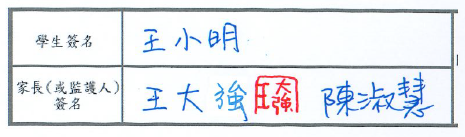 學生簽名 王小明
家長(或監護人)
簽名 王大強 王大強 陳淑慧